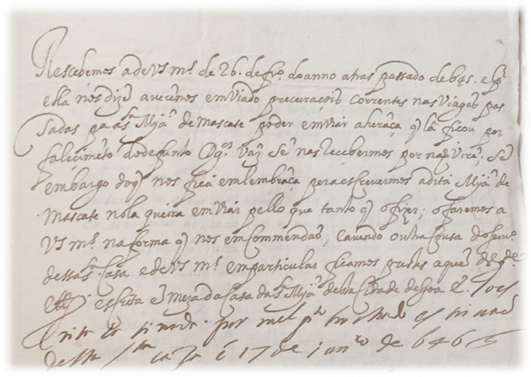 Rescebemos a de Vs ms de 26. de fro do anno atras passado de 645. e q
ella nos dizẽ averẽnos emviado precuracois correntes nas viages pas
sadas pa a sta Mja de Mascate poder emviar a herãca q la ficou por
falecimẽto do defunto Dgos Vaz Se nas recebermos por nao virẽ. Se
embargo do q nos ficá em lembrãca pera escrevermos a dita Mja de
Mascate nola queira emviar pello que tanto q o fizer, o faremos a
Vs ms na forma q nos emcommendaõ, e avendo outra cousa do servo
dessa sta Casa e de Vs ms em particular ficamos prestes a quẽ Ds gde
escrita ẽ meza da Casa da sta Mja desta Cidade de Goa
por mei
desta sta caza é 17 de janro de 646